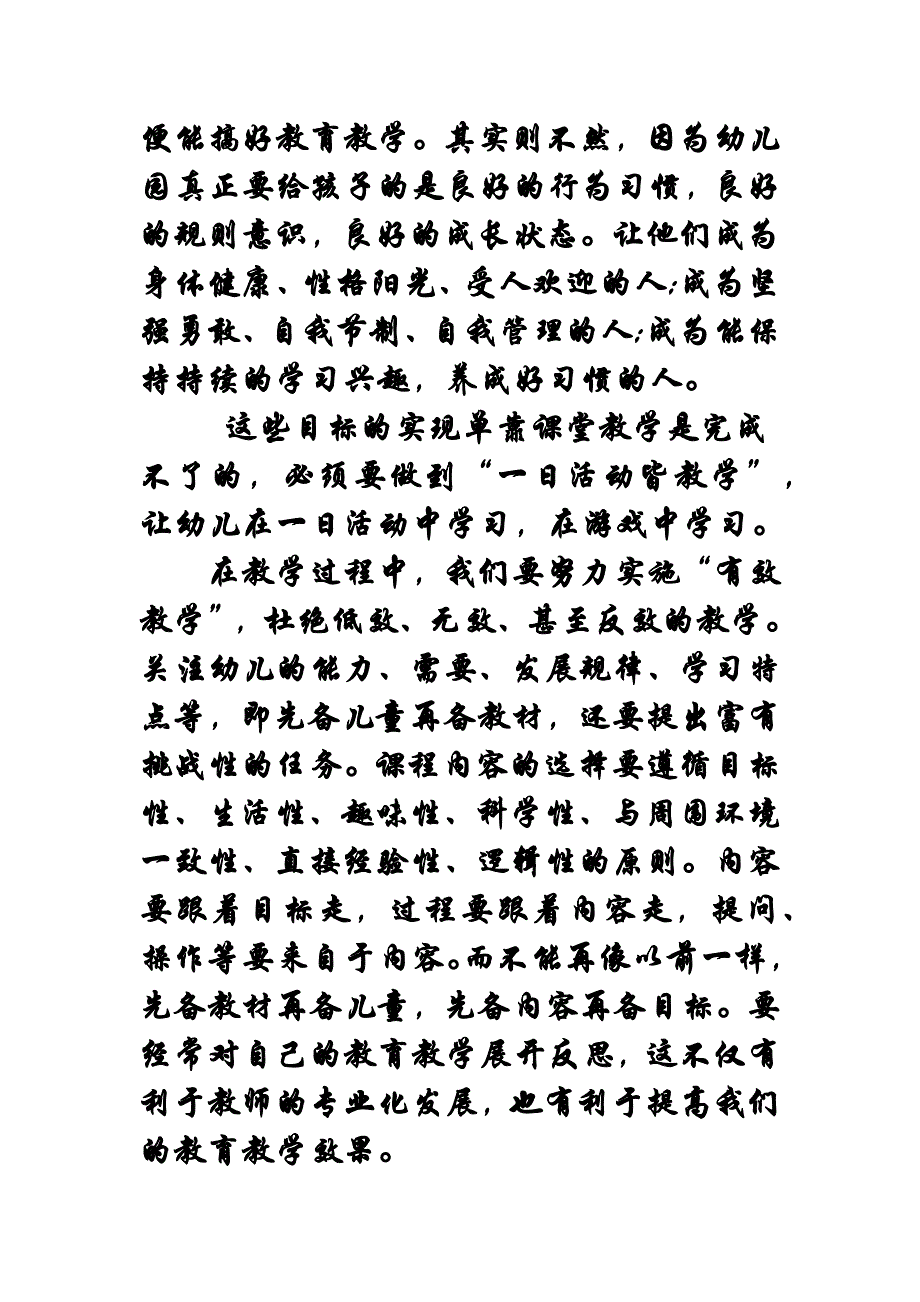 便能搞好教育教学。其实则不然，因为幼儿
园真正要给孩子的是良好的行为习惯，良好
的规则意识，良好的成长状态。让他们成为
身体健康、性格阳光、受人欢迎的人;成为坚
强勇敢、自我节制、自我管理的人;成为能保
持持续的学习兴趣，养成好习惯的人。
这些目标的实现单靠课堂教学是完成
不了的，必须要做到“一日活动皆教学”，
让幼儿在一日活动中学习，在游戏中学习。
在教学过程中，我们要努力实施“有效
教学”，杜绝低效、无效、甚至反效的教学。
关注幼儿的能力、需要、发展规律、学习特
点等，即先备儿童再备教材，还要提出富有
挑战性的任务。课程内容的选择要遵循目标
性、生活性、趣味性、科学性、与周围环境
一致性、直接经验性、逻辑性的原则。内容
要跟着目标走，过程要跟着内容走，提问、
操作等要来自于内容。而不能再像以前一样，
先备教材再备儿童，先备内容再备目标。要
经常对自己的教育教学展开反思，这不仅有
利于教师的专业化发展，也有利于提高我们
的教育教学效果。